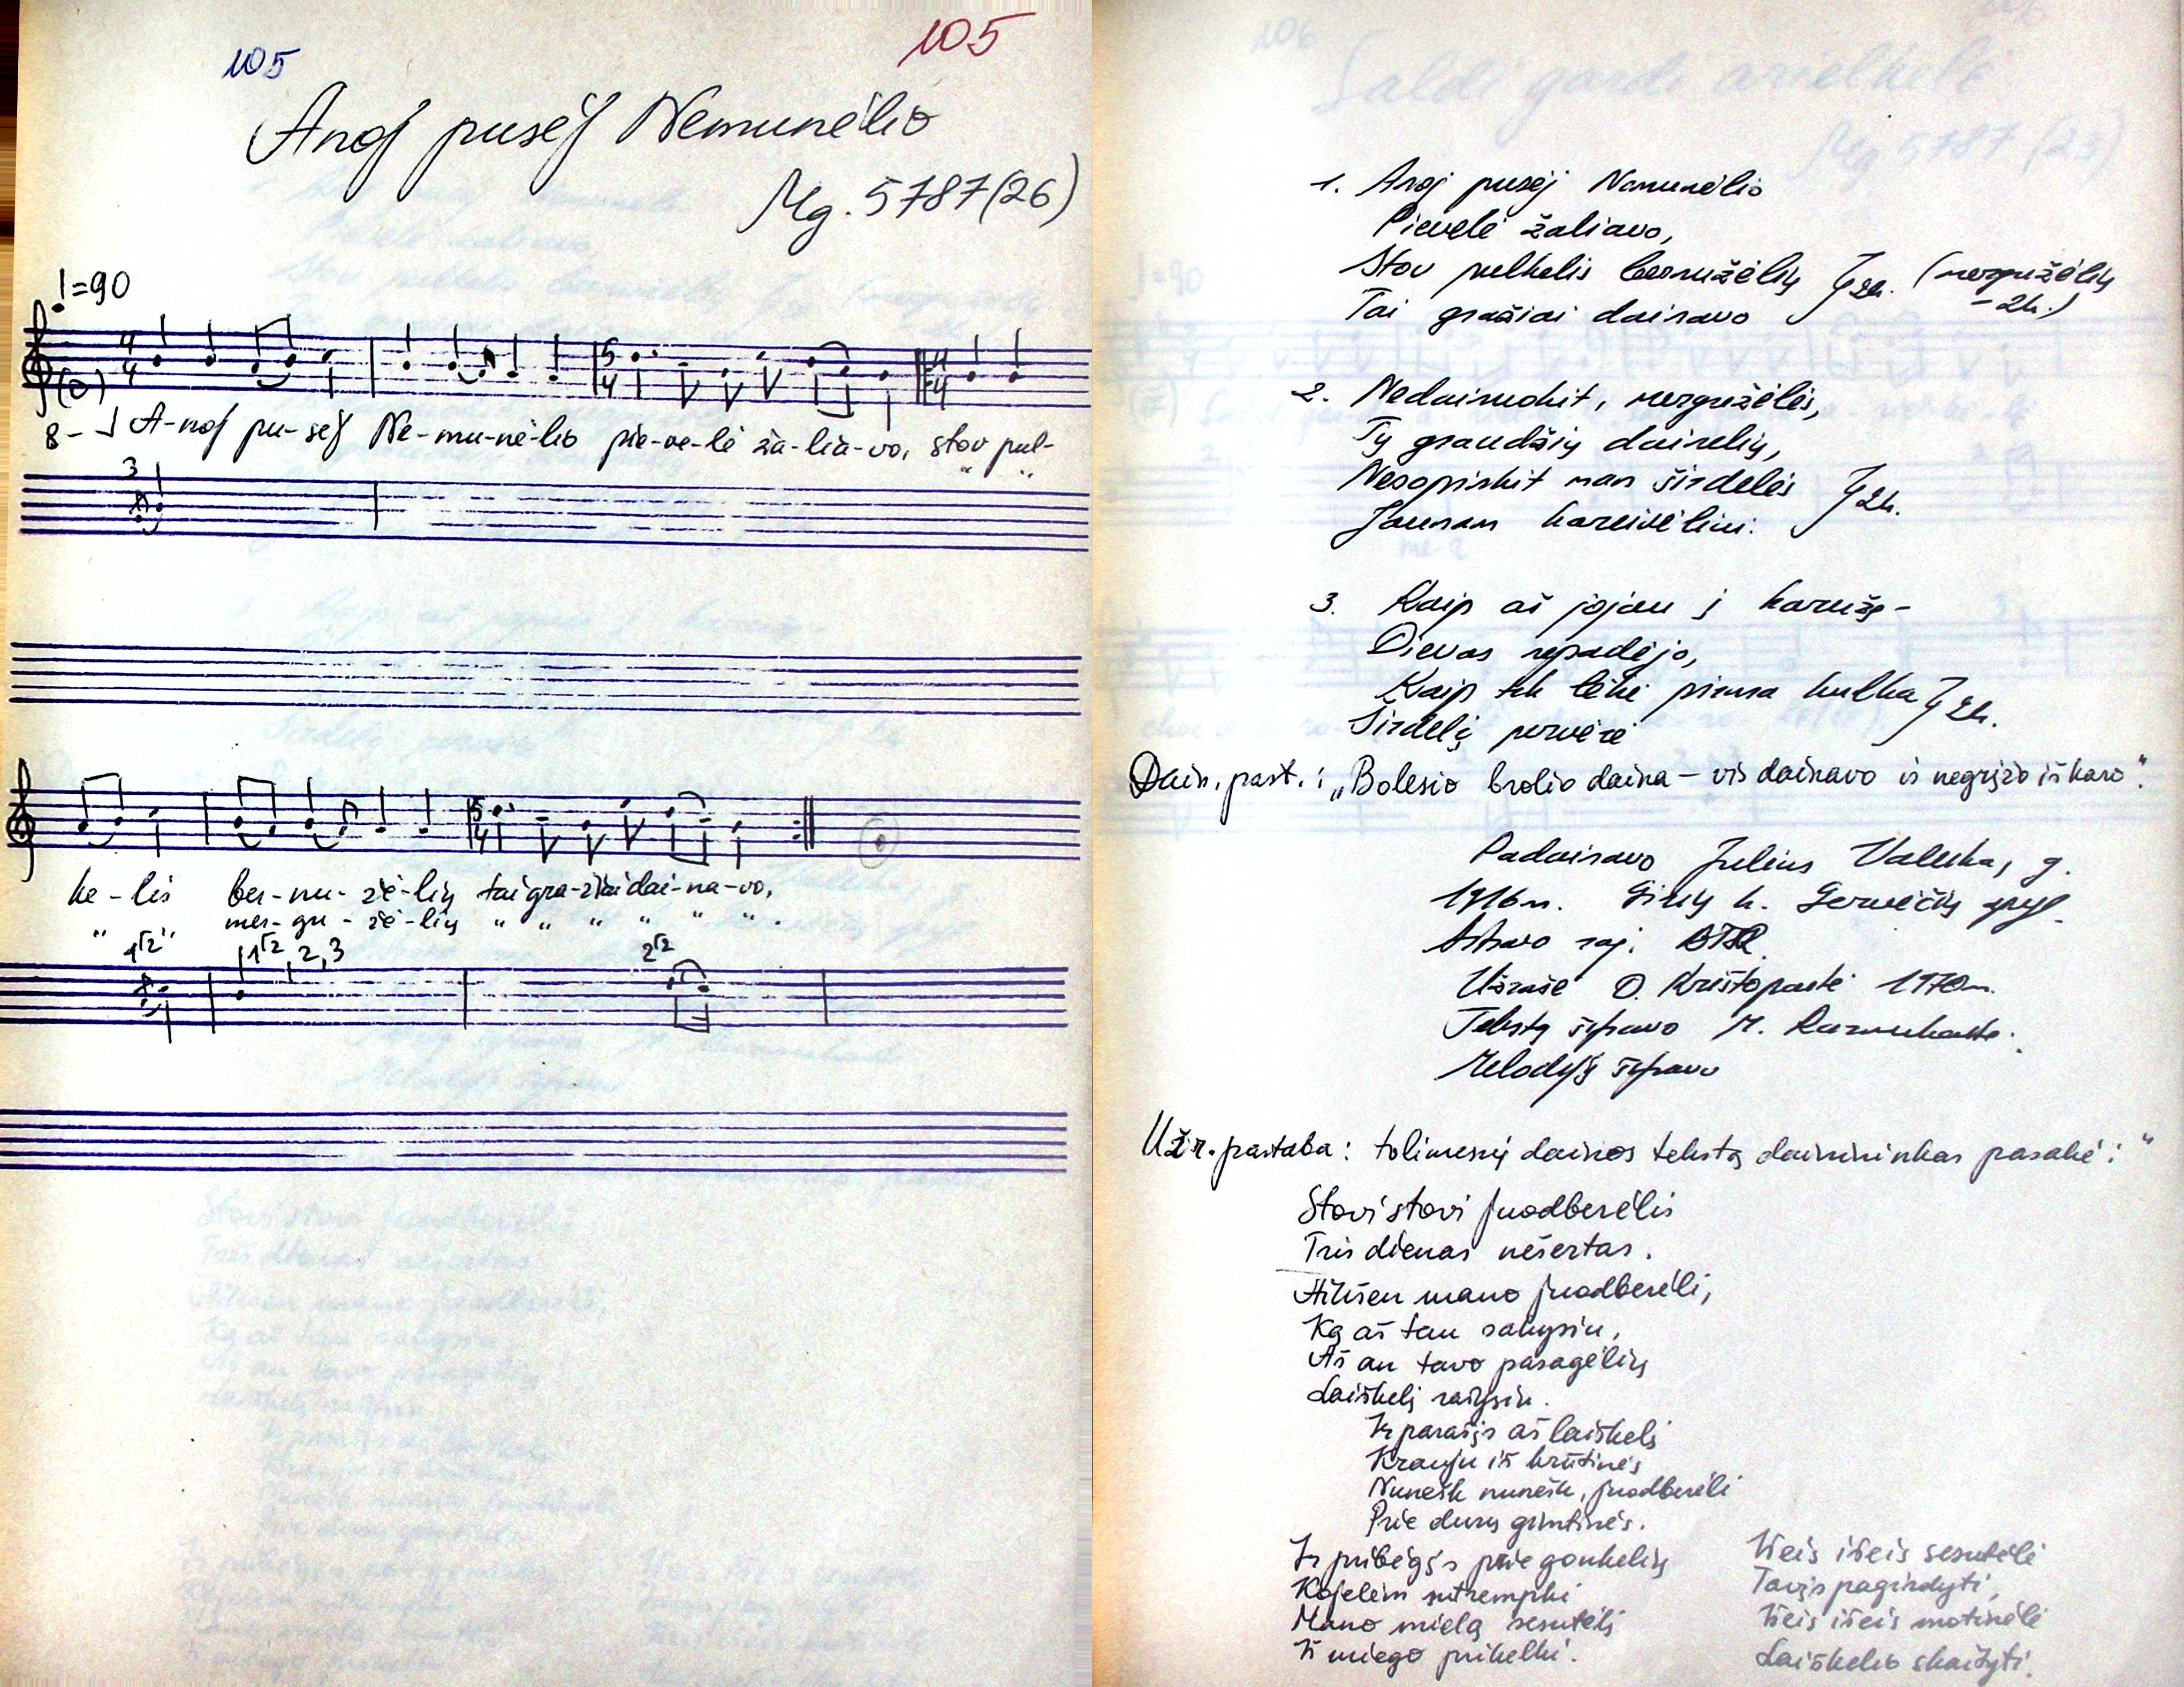 105
105
Anoj pusėj Nemunėlio
Mg. 5787(26)
♩=90
A-noj pu-sėj Ne-mu-nė-lio pie-ve-lė ža-lia-vo, stov pul-
" "
3
ke-lis ber-nu-žė-lių tai gra-žiai dai-na-vo.
" " mer-gu-žė-lių " " " " " " .
1, 2, 3
1. Anoj pusėj Nemunėlio
Pievelė žaliavo,
Stov pulkelis bernužėlių } 2k. (mergužėlių
Tai gražiai dainavo - 2k.)
2. Nedainuokit, mergužėlės,
Tų graudžių dainelių,
Nesopinkit man širdelės } 2k.
Jaunam kareivėliui.
3. Kaip aš jojau į karužę -
Dievas nepadėjo,
Kaip tik lėkė pirma kulka } 2k.
Širdelę pervėrė
Dain. past.: „Bolesio brolio daina – vis dainavo ir negrįžo iš karo".
Padainavo Julius Valuka, g.
1916 m. Girių k. Gervėčių apyl.
Astravo raj. BTSR
Užrašė D. Krištopaitė 1970 m.
Tekstą šifravo M.
Melodiją šifravo
Užr. pastaba: tolimesnį dainos tekstą dainininkas pasakė: "
Stovi stovi juodbėrėlis
Tris dienas nešertas.
Atikšen mano juodbėrėli,
Ką aš tau sakysiu,
Aš an tavo pasagėlių
Laiškelį rašysiu.
Ir parašįs aš laiškelį
Krauju iš krūtinės
Nunešk nunešk, juodbėrėli
Prie durų gimtinės.
Ir pribėgįs prie gonkelių
Kojelėm sutrempki
Mano mielą sesutėlį
Iš miego prikelki.
Išeis išeis sesutėlė
Tavįs pagirdyti,
Išeis išeis motinėlė
Laiškelio skaityti.